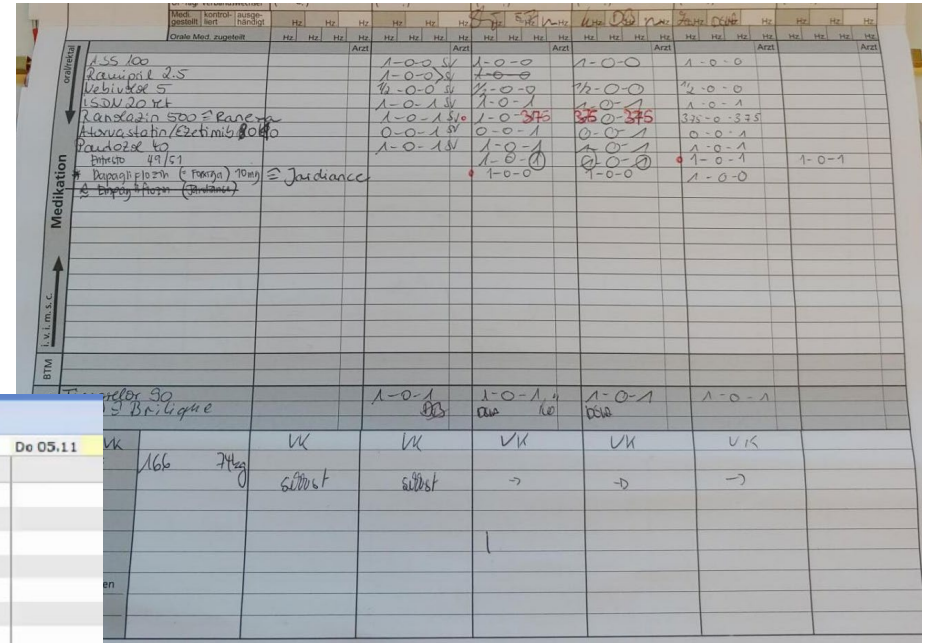 Medi. gestellt kontrol-liert ausge-händigt Hz Hz Hz Hz Hz Hz Hz Hz Hz Hz Hz
Orale Med. zugeteilt Hz Hz Hz Hz Hz Hz Hz Hz Hz Hz Hz Hz Hz Hz Hz Hz Hz Hz
Arzt Arzt Arzt Arzt Arzt Arzt
oral/rektal
ASS 100 1-0-0 SV 1-0-0 1-0-0 1-0-0
Ramipril 2.5 1-0-0 SV 1-0-0
Nebivolol 5 1/2-0-0 SV 1/2-0-0 1/2-0-0 1/2-0-0
ISDN 20 ret 1-0-1 SV 1-0-1 1-0-1 1-0-1
Ranolazin 500 = Ranexa 1-0-1 SV 1-0-375 375-0-375 375-0-375
Atorvastatin/Ezetimib 0-0-1 SV 0-0-1 0-0-1 0-0-1
Pantozol 40 1-0-1 SV 1-0-1 1-0-1 1-0-1
Entresto 49/51 1-0-1 1-0-1 1-0-1
* Dapagliflozin (= Forxiga) 10mg ≙ Jardiance 1-0-0 1-0-0 1-0-0
Empagliflozin (Jardiance)
Medikation
i. v. i. m. s. c.
BTM
90 1-0-1 1-0-1 1-0-1 1-0-1
Brilique
Do 05.11
VK VK VK VK VK VK
166 74kg
selbst selbst → → →
en